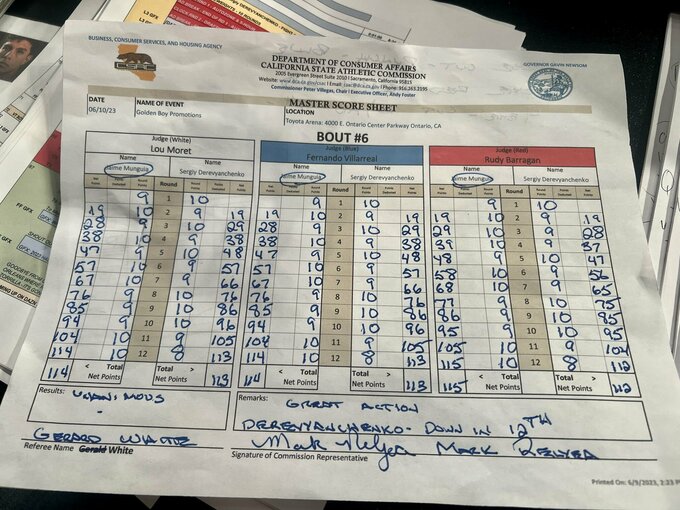 BUSINESS, CONSUMER SERVICES, AND HOUSING AGENCY
GOVERNOR GAVIN NEWSOM
DEPARTMENT OF CONSUMER AFFAIRS
CALIFORNIA STATE ATHLETIC COMMISSION
2005 Evergreen Street Suite 2010 | Sacramento, California 95815
Website: www.dca.ca.gov/csac | Email: csac@dca.ca.gov | Phone: 916.263.2195
Commissioner Peter Villegas, Chair | Executive Officer, Andy Foster
MASTER SCORE SHEET
DATE NAME OF EVENT LOCATION
06/10/23 Golden Boy Promotions Toyota Arena: 4000 E. Ontario Center Parkway Ontario, CA
BOUT #6
Judge (White) Judge (Blue) Judge (Red)
Lou Moret Fernando Villarreal Rudy Barragan
Name Name Name Name Name Name
Jaime Munguia Sergiy Derevyanchenko Jaime Munguia Sergiy Derevyanchenko Jaime Munguia Sergiy Derevyanchenko
Net Points Points Deducted Round Points Round Round Points Points Deducted Net Points Net Points Points Deducted Round Points Round Round Points Points Deducted Net Points Net Points Points Deducted Round Points Round Round Points Points Deducted Net Points
9 1 10 9 1 10 9 1 10
19 10 2 9 19 19 10 2 9 19 19 10 2 9 19
28 9 3 10 29 28 9 3 10 29 29 10 3 9 28
38 10 4 9 38 38 10 4 9 38 39 10 4 9 37
47 9 5 10 48 47 9 5 10 48 48 9 5 10 47
57 10 6 9 57 57 10 6 9 57 58 10 6 9 56
67 10 7 9 66 67 10 7 9 66 68 10 7 9 65
76 9 8 10 76 76 9 8 10 76 77 9 8 10 75
85 9 9 10 86 85 9 9 10 86 86 9 9 10 85
94 9 10 10 96 94 9 10 10 96 95 9 10 10 95
104 10 11 9 105 104 10 11 9 105 105 10 11 9 104
114 10 12 8 113 114 10 12 8 113 115 10 12 8 112
114 < Total Net Points > 113 114 < Total Net Points > 113 115 < Total Net Points > 112
Results: UNANIMOUS
Remarks: GREAT ACTION
DEREVYANCHENKO - DOWN IN 12TH
GERARD WHITE Mark Relyea MARK RELYEA
Referee Name Gerald White Signature of Commission Representative
Printed On: 6/9/2023, 2:23 P